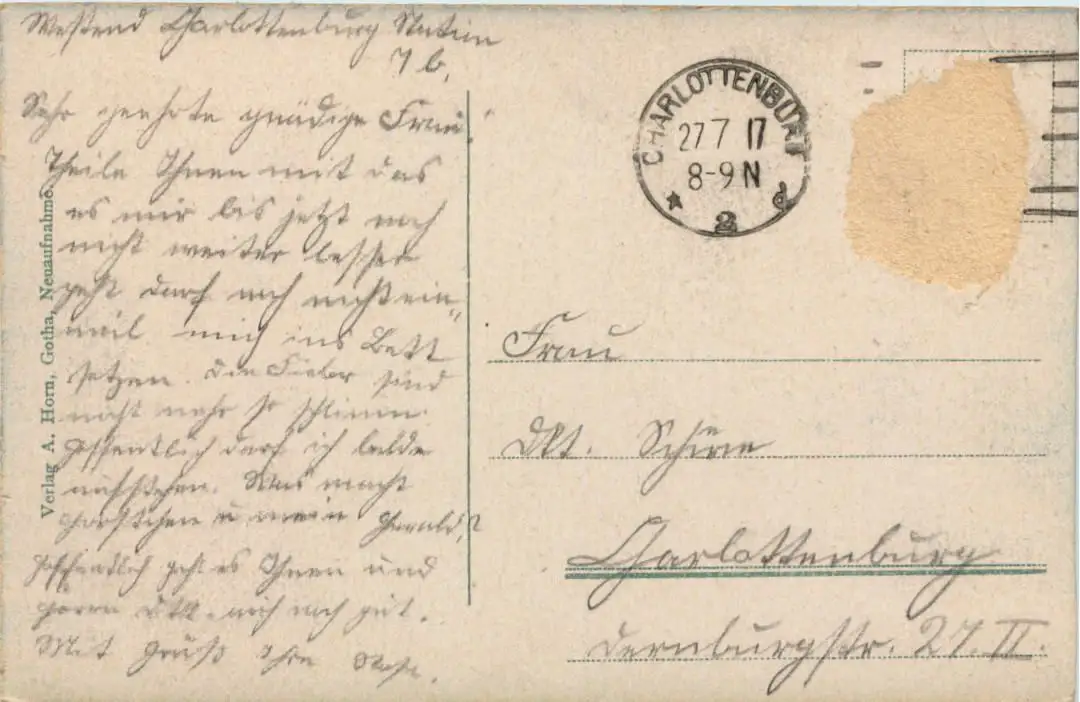 Westend Charlottenburg Station
7 b.
Sehr geehrte gnädige Frau!
Theile Ihnen mit das
es mir bis jetzt noch
nicht weiter besser
geht darf noch nicht ein„
mal mich ins Bett
setzen. Die Fieber sind
nicht mehr so schlimm.
Hoffentlich darf ich balde
aufstehen. Was macht
u mein Harald,?
Hoffentlich geht es Ihnen und
Herrn Dkt. auch noch gut.
Mit Gruß Ihre
Verlag A. Horn, Gotha, Neuaufnahme.
CHARLOTTENBURG
27 7 17
8-9 N
* 2 d
Frau
Dkt.
Charlottenburg
Dernburgstr. 27. II.